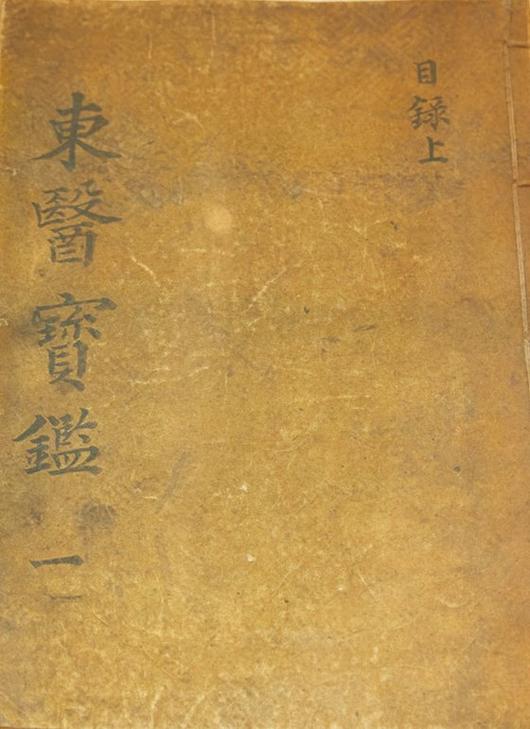 目録上
東醫寶鑑 一